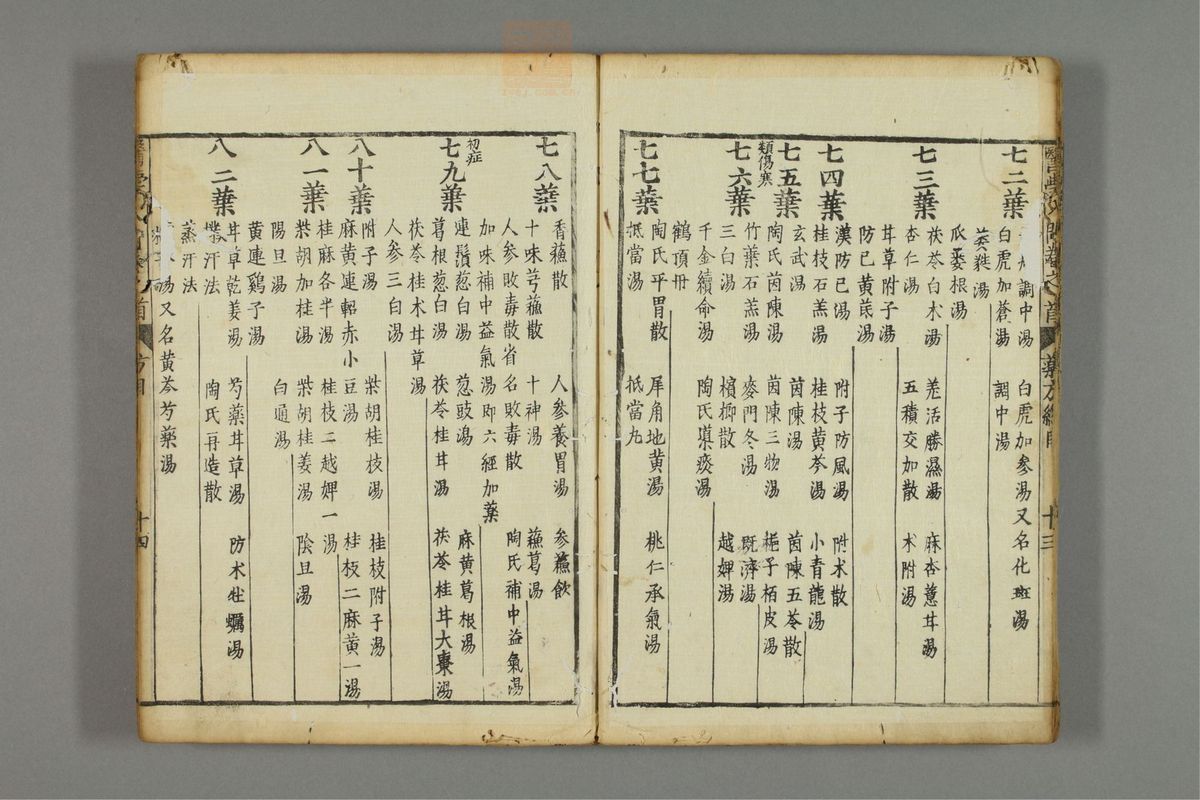 七二葉
調中湯 白虎加參湯又名化斑湯
白虎加蒼湯 調中湯
葳蕤湯
瓜蔞根湯
七三葉
茯苓白朮湯 羌活勝濕湯 麻杏薏苡湯
杏仁湯 五積交加散 朮附湯
甘草附子湯
防已黃芪湯
七四葉
漢防已湯 附子防風湯 附朮散
桂枝石羔湯 桂枝黃芩湯 小青龍湯
七五葉
玄武湯 茵陳湯 茵陳五苓散
陶氏茵陳湯 茵陳三物湯 梔子栢皮湯
類傷寒
七六葉
竹葉石羔湯 麥門冬湯 既濟湯
三白湯 檳榔散 越婢湯
千金續命湯 陶氏導痰湯
鶴頂丹
七七葉
陶氏平胃散 犀角地黃湯 桃仁承氣湯
抵當湯 抵當丸
醫學入門卷之首 藥方總目 十三
七八葉
香蘓散 人參養胃湯 參蘓飲
十味芎蘓散 十神湯 蘓葛湯
人參敗毒散省名敗毒散 陶氏補中益氣湯
加味補中益氣湯即六經加藥
初症
七九葉
連鬚葱白湯 葱豉湯 麻黃葛根湯
葛根葱白湯 茯苓桂甘湯 茯苓桂甘大棗湯
茯苓桂朮甘草湯
人參三白湯
八十葉
附子湯 柴胡桂枝湯 桂枝附子湯
麻黃連軺赤小豆湯 桂枝二麻黃一湯
桂麻各半湯 桂枝二越婢一湯
八一葉
柴胡加桂湯 柴胡桂姜湯 陰旦湯
陽旦湯 白通湯
黃連鷄子湯
八二葉
甘草乾姜湯 芍藥甘草湯 防朮牡蠣湯
陶氏再造散
汗法
蒸汗法
湯又名黃芩芍藥湯
首 方目 十四